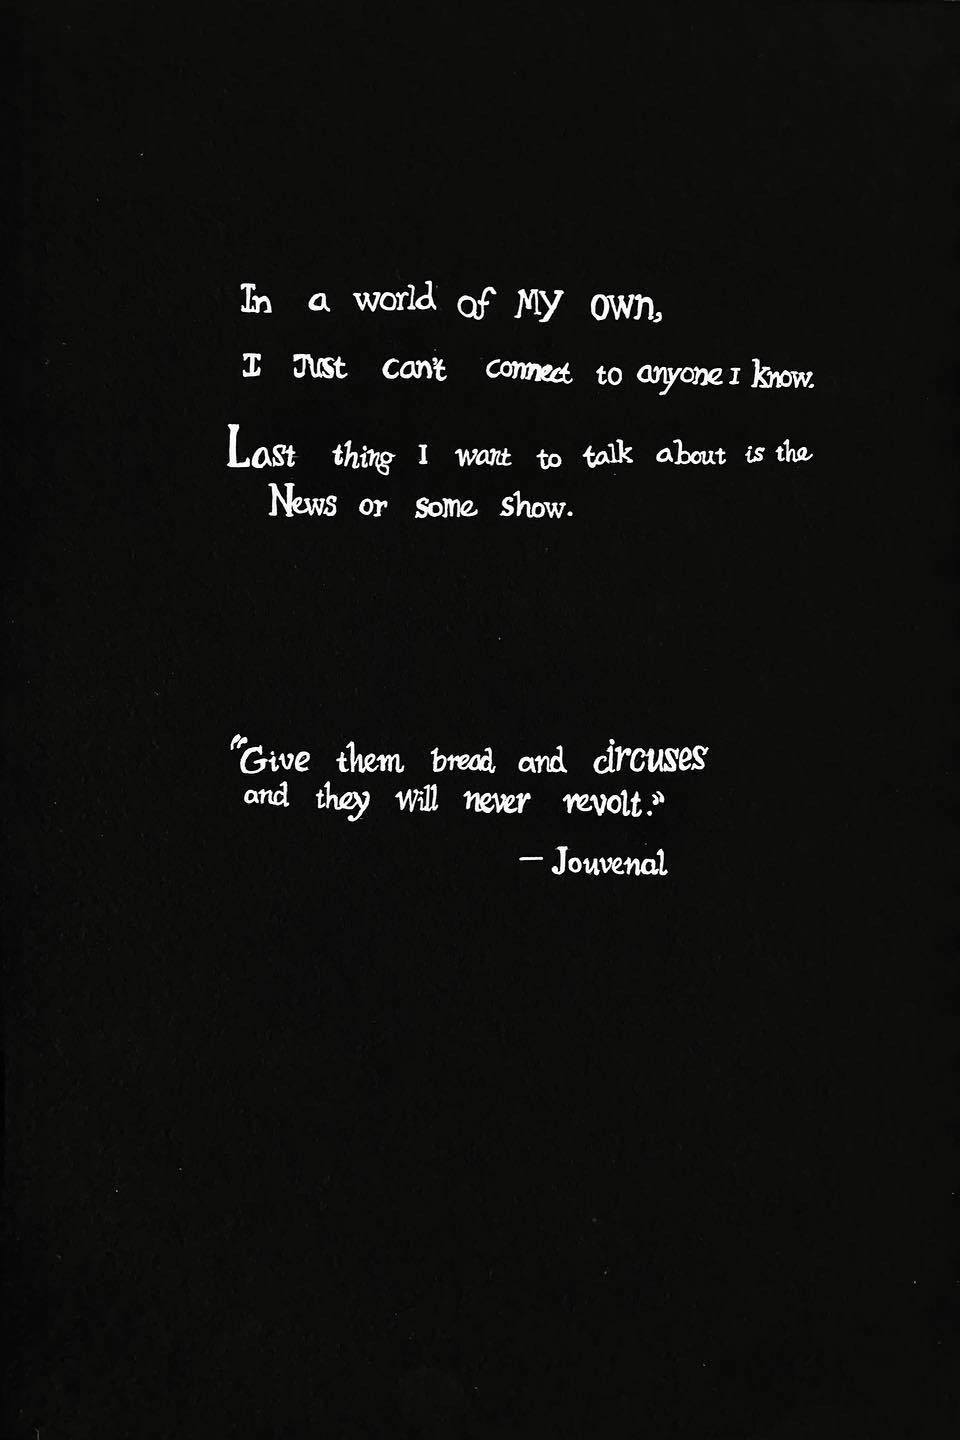 In a world of My own,
I Just can't connect to anyone I know.
Last thing I want to talk about is the
News or some show.
"Give them bread and circuses
and they will never revolt."
— Jouvenal